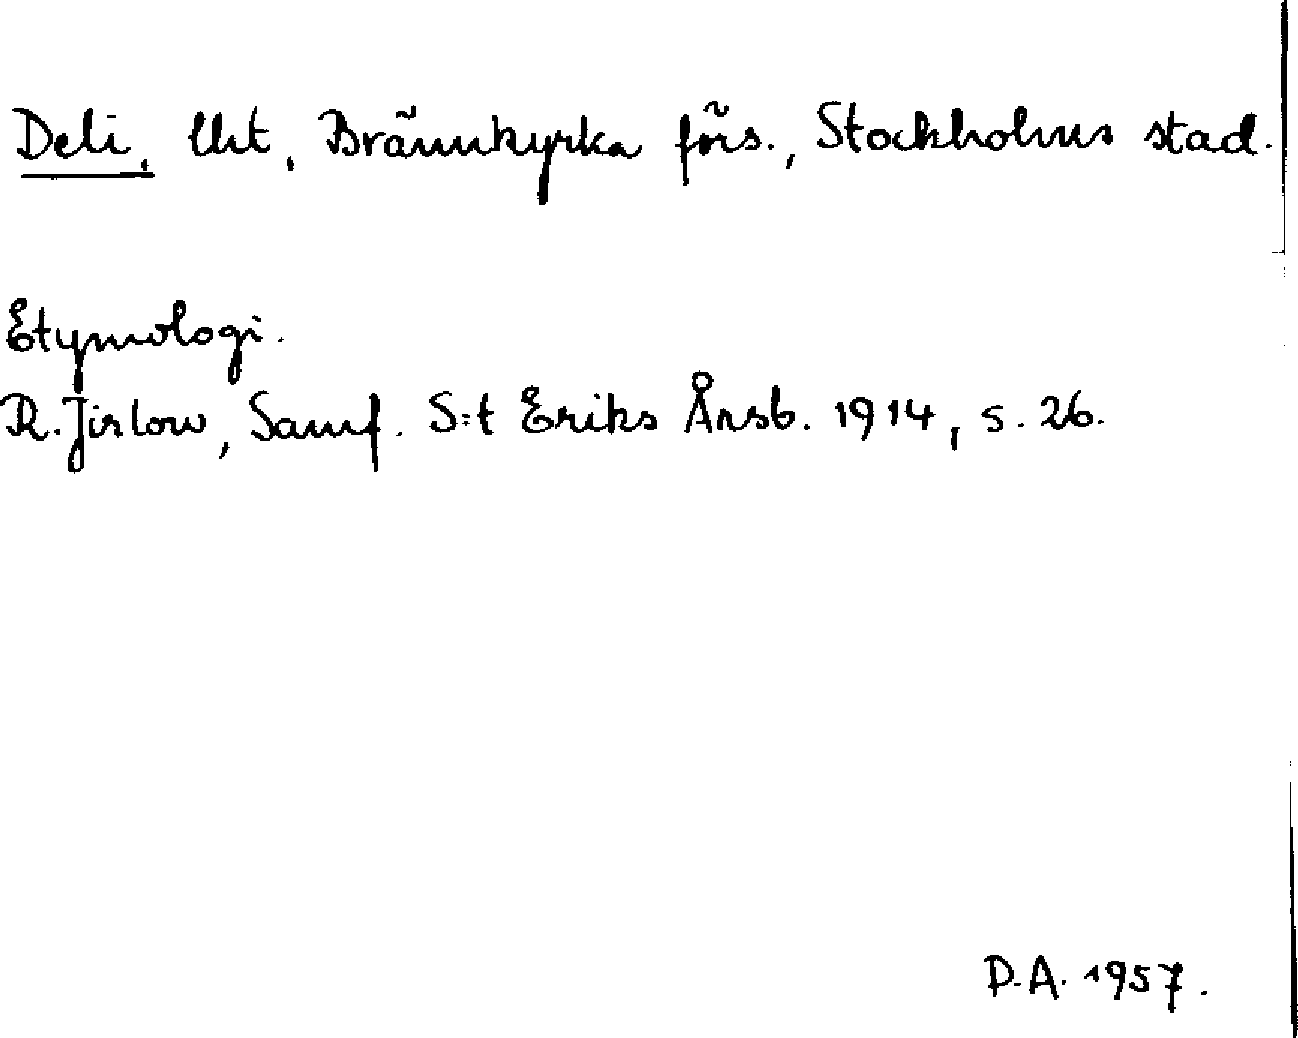 Deli, lht, Brännkyrka förs., Stockholms stad.
Etymologi.
R. Jirlow, Samf. S:t Eriks Årsb. 1914, s. 26.
D.A. 1957.